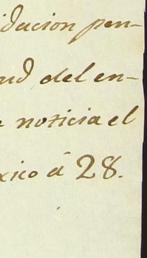 idacion pen-
ud del en-
e noticia el
xico á 28.